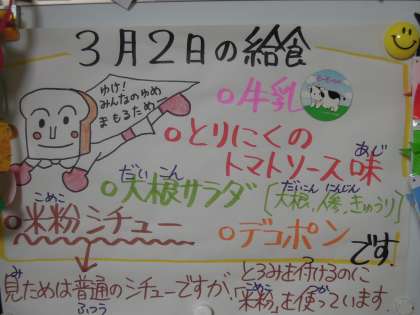 3月2日の給食
ゆけ!
みんなのゆめ
まもるため
○牛乳
○とりにくの
トマトソース味
あじ
だいこん
○大根サラダ
だいこん にんじん
[大根、人参、きゅうり]
こめこ
○米粉シチュー
○デコポン
です。
み
見ためは普通のシチューですが、
ふつう
とろみを付けるのに
こめこ つか
「米粉」を使っています。